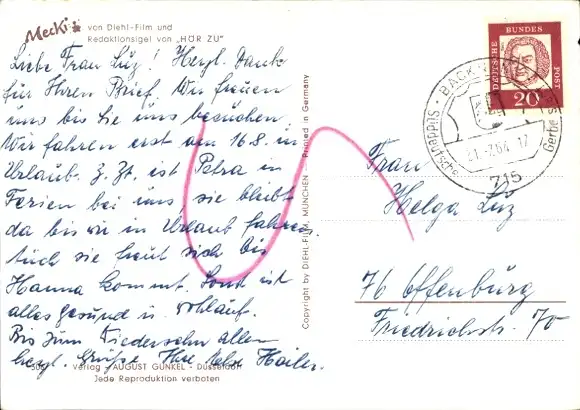 Mecki von Diehl-Film und
Redaktionsigel von „HÖR ZU"
Liebe Frau Luz! Herzl. Dank
für Ihren Brief. Wir freuen
uns bis Sie uns besuchen
Wir fahren erst am 16.8. in
Urlaub. Z. Zt. ist Petra in
Ferien bei uns, sie bleibt
da bis wir in Urlaub fahren.
Auch sie freut sich bis
Hanna kommt. Sonst ist
alles gesund u. wohlauf.
Bis zum Wiedersehn allen
herzl. Grüße Ihre
Verlag AUGUST GUNKEL - Düsseldorf
Jede Reproduktion verboten
Copyright by DIEHL-FILM, MÜNCHEN Printed in Germany
DEUTSCHE BUNDESPOST
20
BACKNANG
Süddeutschlands Gerber
31.-7.64.-17
715
Frau
Helga Luz
76 Offenburg
Friedrichstr. 70